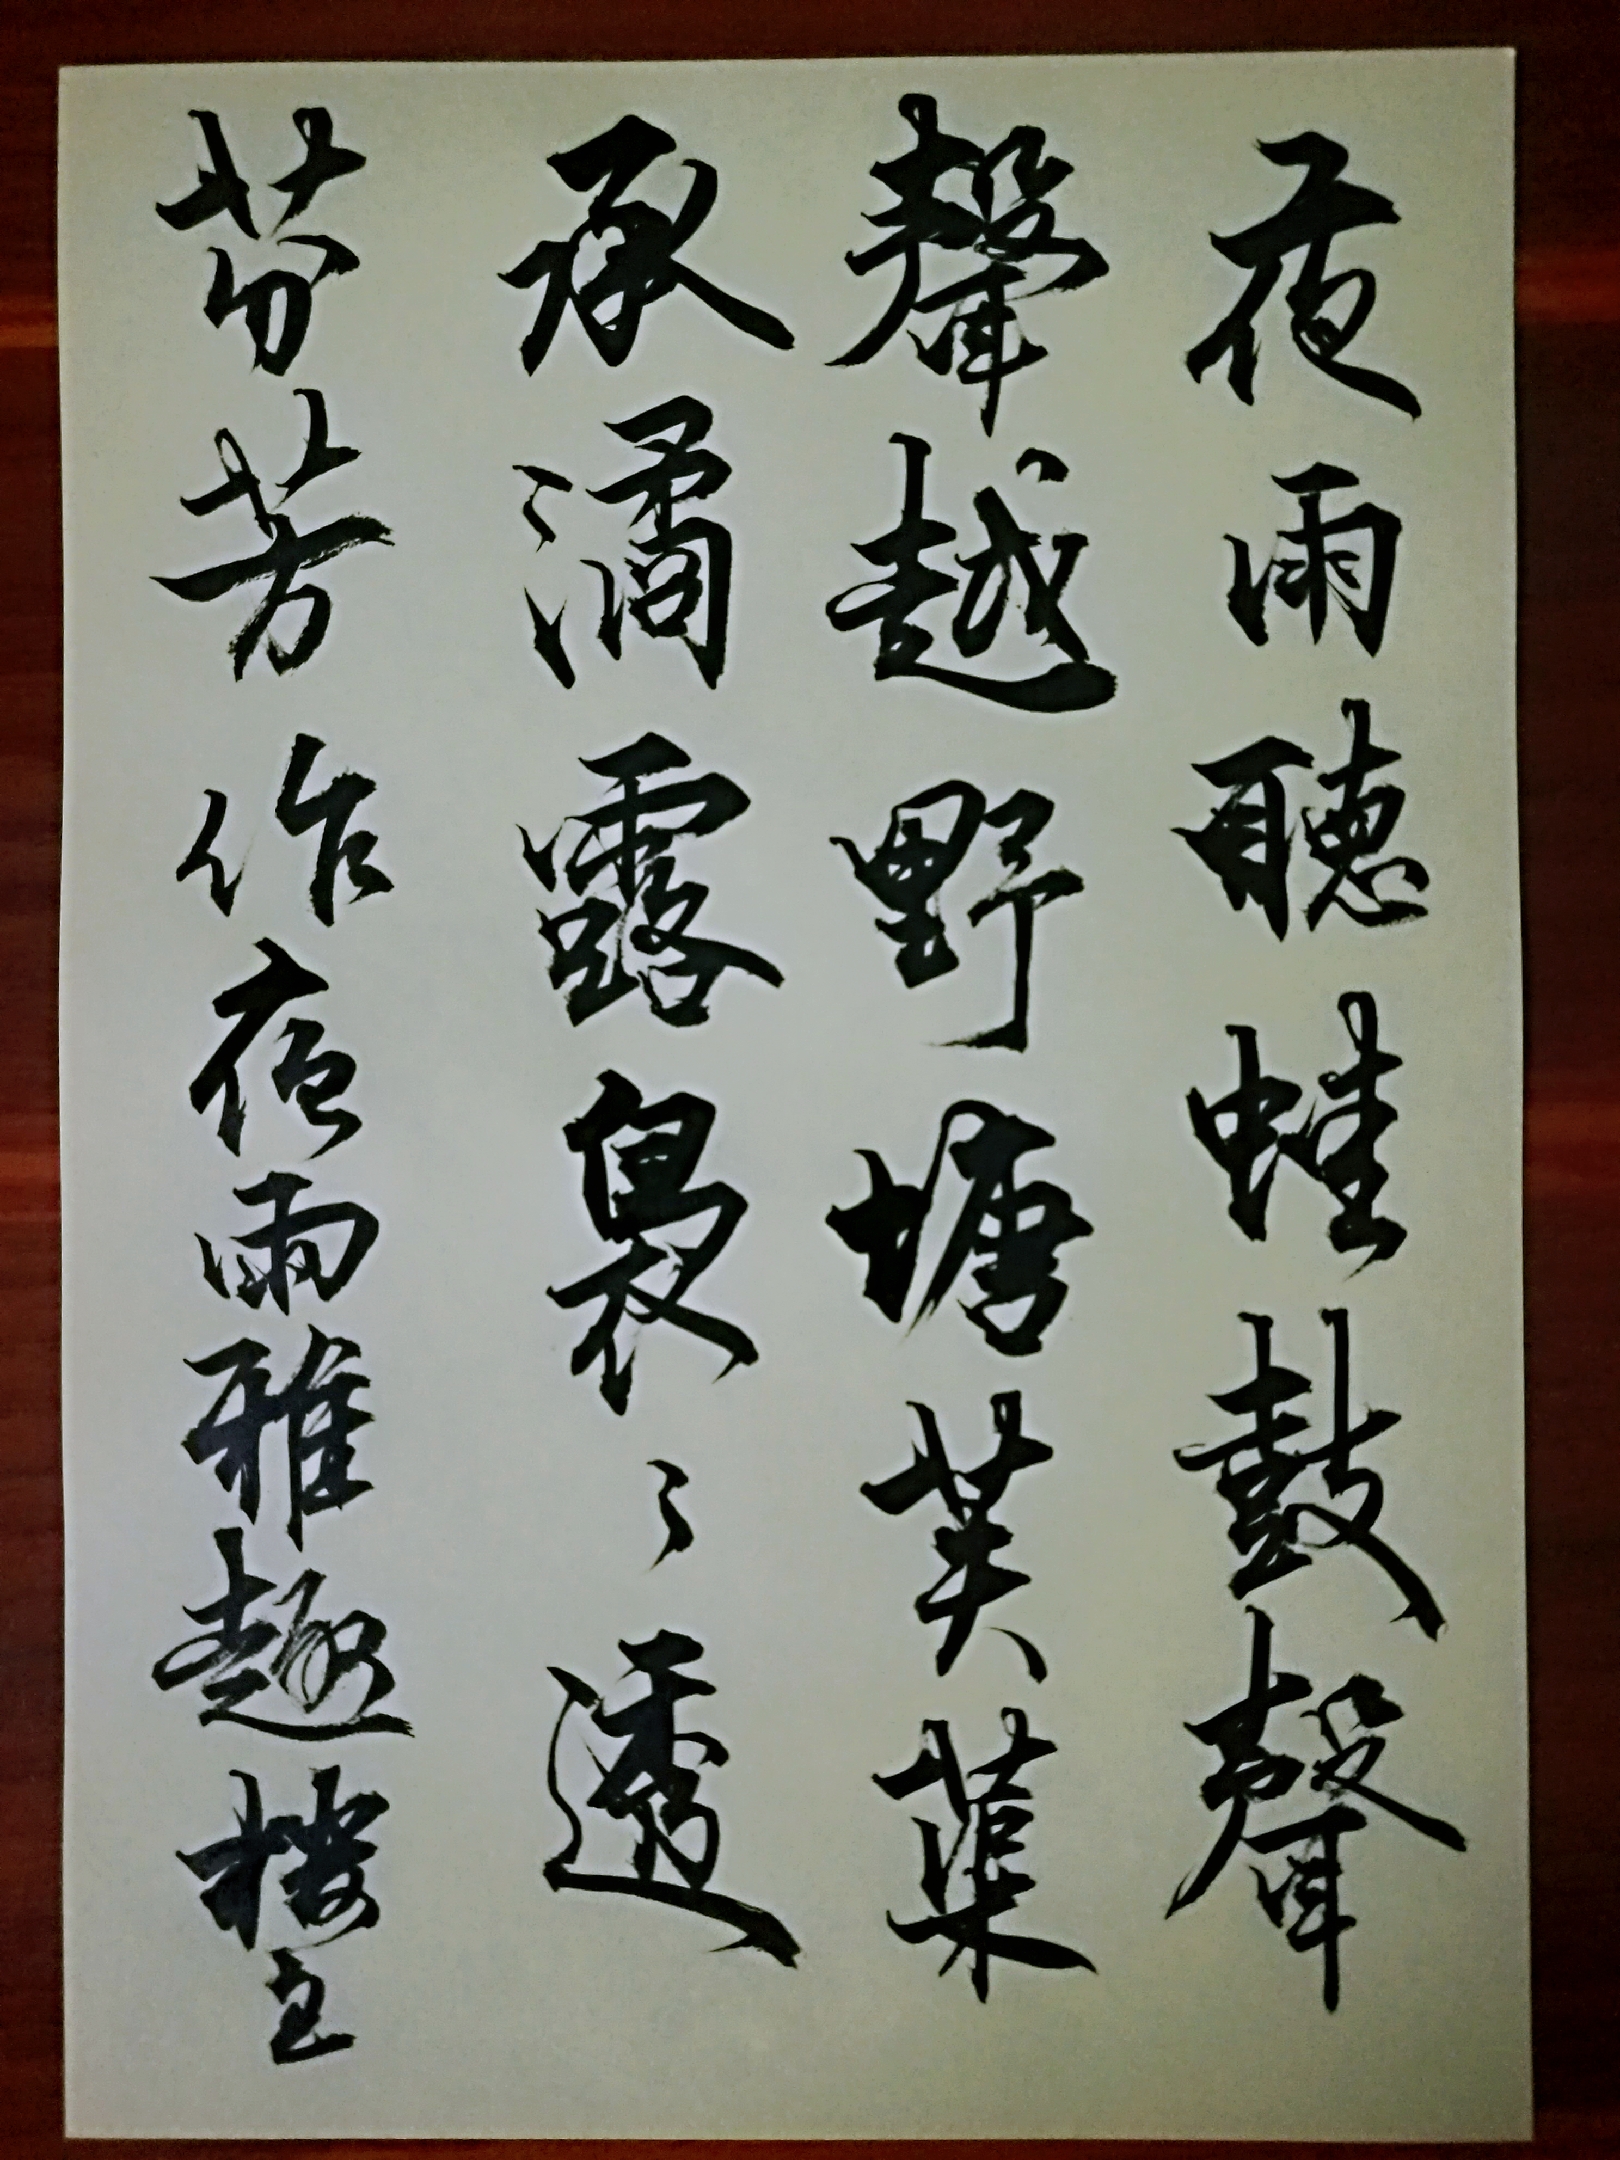 夜雨聽蛙鼓聲
聲越野塘芙蕖
承滴露裊〻透
芬芳 作夜雨雅趣樓主